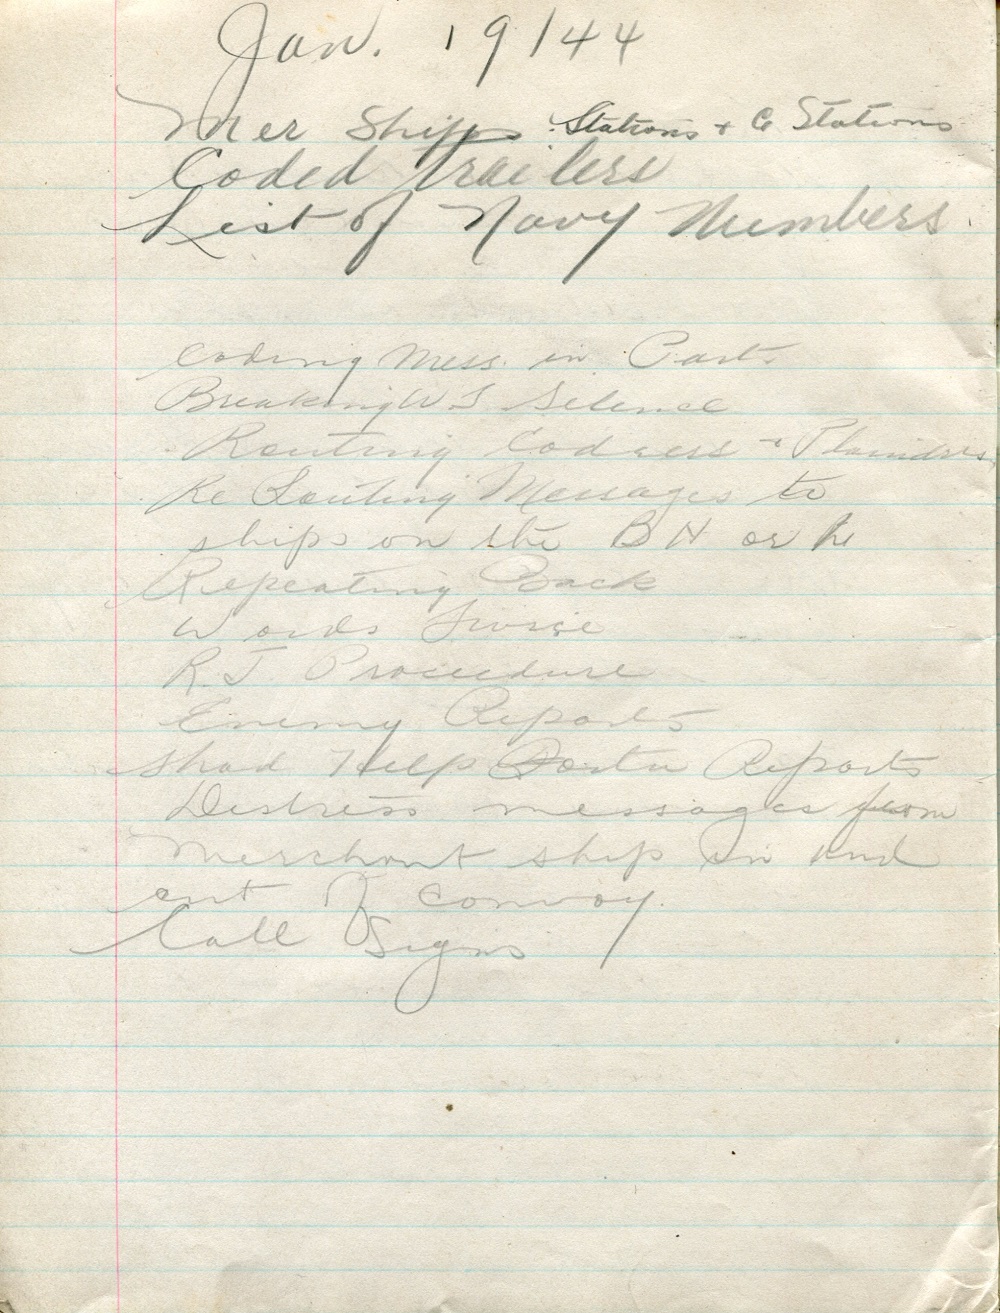 Jan. 19/44
Mer Ships Stations + G Stations
Coded Trailers
List of Navy Numbers
Coding Mess. in Part.
Breaking WT Silence
Routing Codress + Plaindress
Re Routing Messages to
ships on the BN or
Repeating Back
Words Twice
R.T Procedure
Enemy Reports
Shad Help Reports
Distress messages from
Merchant ship in and
out of convoy.
Call Signs